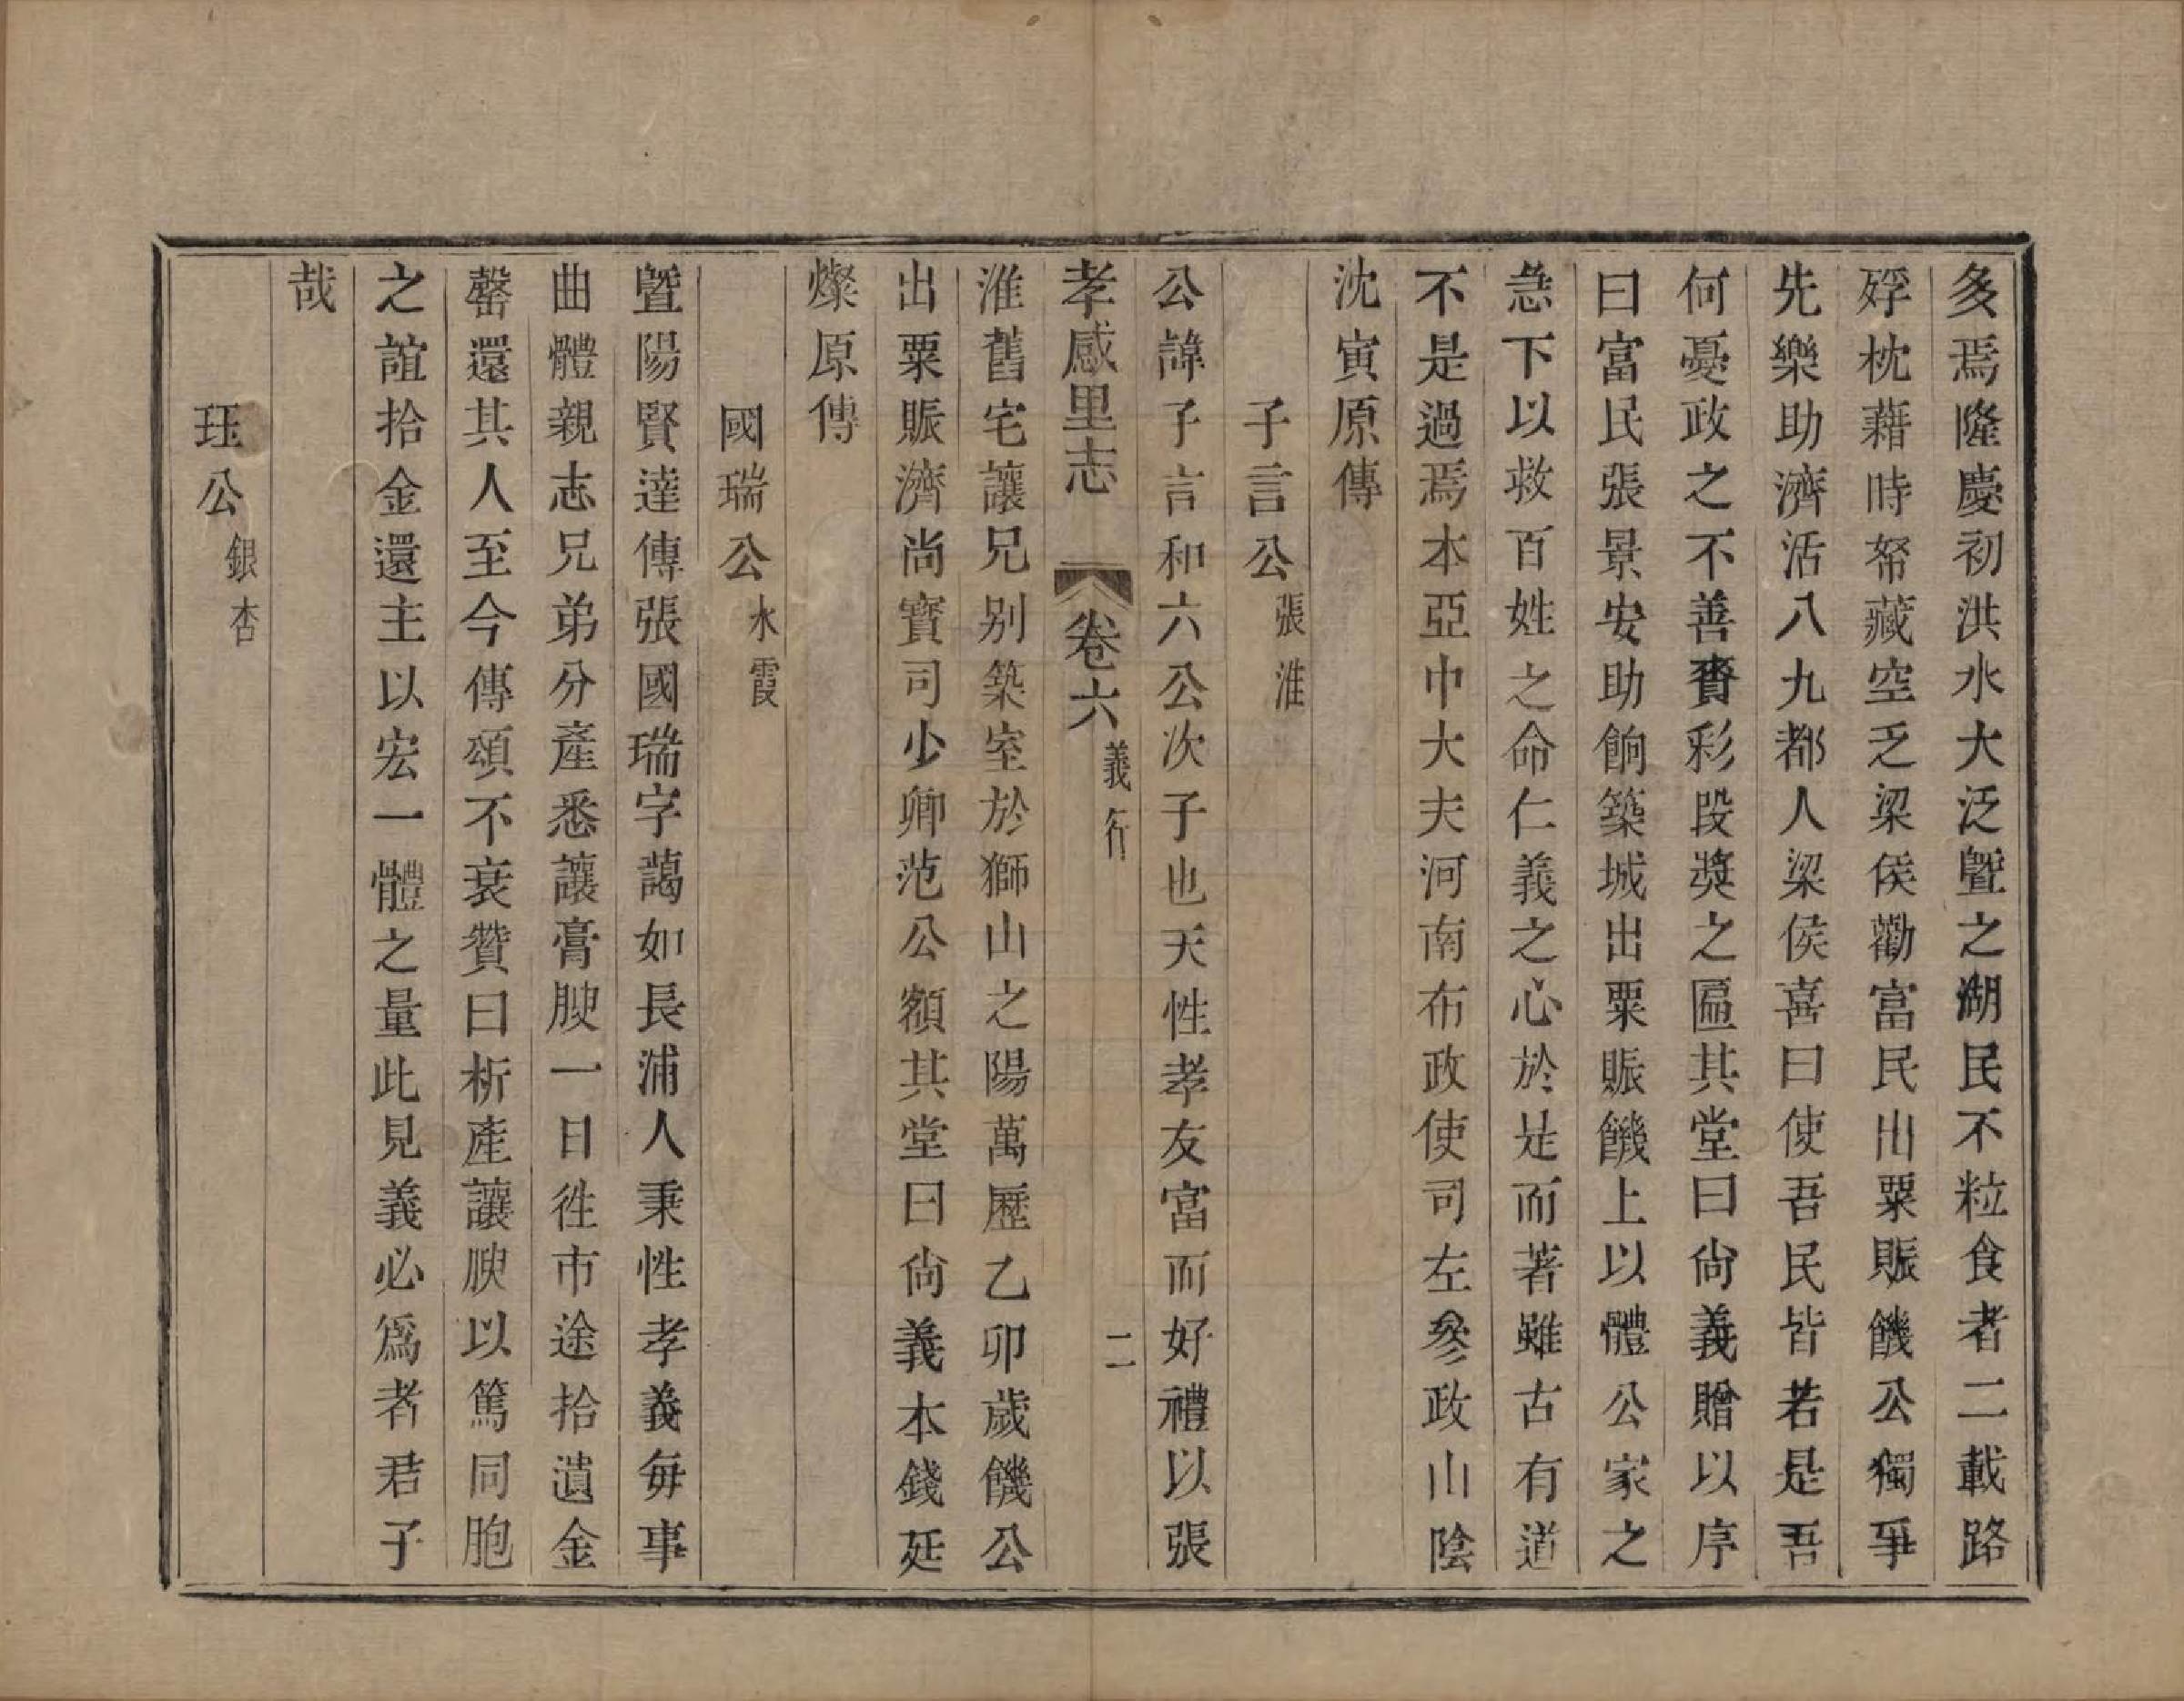 多焉隆慶初洪水大泛曁之湖民不粒食者二載路
殍枕藉時帑藏空乏梁侯勸富民出粟賑饑公獨爭
先樂助濟活八九都人梁侯喜曰使吾民皆若是吾
何憂政之不善賚彩段奬之匾其堂曰尙義贈以序
曰富民張景安助餉築城出粟賑饑上以體公家之
急下以救百姓之命仁義之心於是而著雖古有道
不是過焉本亞中大夫河南布政使司左參政山陰
沈寅原傳
子言公張淮
公諱子言和六公次子也天性孝友富而好禮以張
孝感里志 卷六義行 二
淮舊宅讓兄别築室於獅山之陽萬歷乙卯歲饑公
出粟賑濟尚寳司少卿范公額其堂曰尙義本錢延
燦原傳
國瑞公水霞
曁陽賢達傳張國瑞字藹如長浦人秉性孝義每事
曲體親志兄弟分產悉讓膏腴一日徃市途拾遺金
罄還其人至今傳頌不衰贊曰析產讓腴以篤同胞
之誼拾金還主以宏一體之量此見義必爲者君子
哉
珏公銀杏